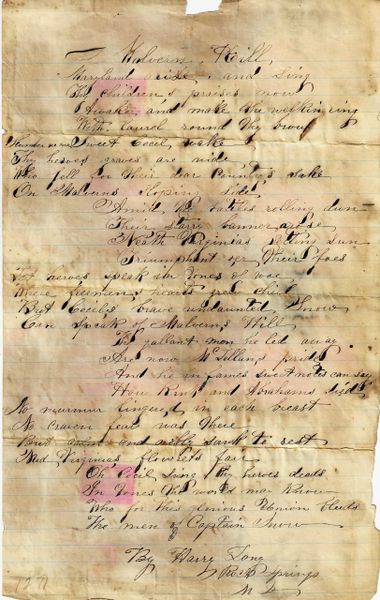 To Malvern Hill,
Maryland arise, and sing
Thy children's praises now
Awake, and make the welkin ring
With laurel round thy brow
Slumber no more Sweet Cecil, wake
Thy heroes graves are wide
Who fell for their dear Country's sake
On Malverns sloping side
Amid the battles rolling dun
Their starry banner arose
Neath Virginias setting sun
Triumphant oer their foes
Let heroes speak in tones of woe
Where freemens hearts grew chill
But Cecils brave undaunted, Snow
Can speak of Malverns Hill
The gallant men he led away
Are now McLellans pride
And he in fames sweet notes can say
How Kirk and Abrahams died
No murmur lingued, in each breast
No craven fear was there
But and nobly sank to rest
Mid Virginias flowrets fair
Oh Cecil sing thy heroes deeds
In tones the world may know
Who for this glorious Union bleeds
The men of Captain Snow
By Harry
Rock Springs
Md